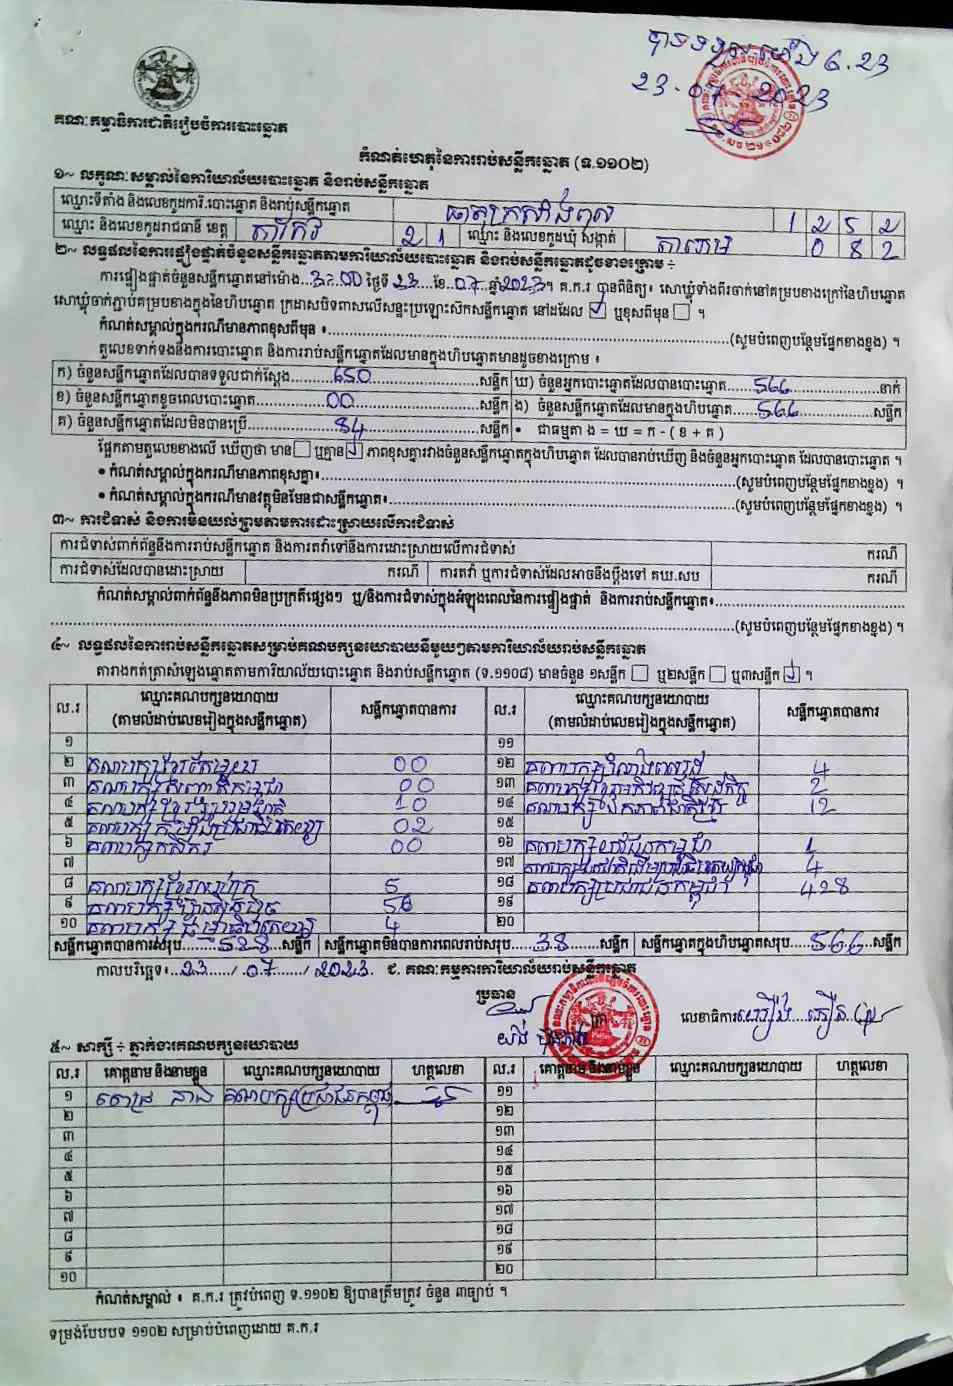 បានទទួល ម៉ោង 6.23
23-07-2023
គណៈកម្មាធិការជាតិរៀបចំការបោះឆ្នោត
កំណត់ហេតុនៃការរាប់សន្លឹកឆ្នោត (ទ.១១០២)
១~ លក្ខណៈសម្គាល់នៃការិយាល័យបោះឆ្នោត និងរាប់សន្លឹកឆ្នោត
ឈ្មោះទីតាំង និងលេខកូដការិ.បោះឆ្នោត និងរាប់សន្លឹកឆ្នោត 1 2 5 2
ឈ្មោះ និងលេខកូដរាជធានី ខេត្ត តាកែវ 2 1 ឈ្មោះ និងលេខកូដឃុំ សង្កាត់ តាភេម 0 8 2
២~ លទ្ធផលនៃការផ្ទៀងផ្ទាត់ចំនួនសន្លឹកឆ្នោតតាមការិយាល័យបោះឆ្នោត និងរាប់សន្លឹកឆ្នោតដូចខាងក្រោម ÷
ការផ្ទៀងផ្ទាត់ចំនួនសន្លឹកឆ្នោតនៅម៉ោង...3:00 ថ្ងៃទី 23...ខែ..07..ឆ្នាំ2023។ គ.ក.រ បានពិនិត្យ៖ សោឃ្លុំទាំងពីរចាក់នៅគម្របខាងក្រៅនៃហិបឆ្នោត
សោឃ្លុំចាក់ភ្ជាប់គម្របខាងក្នុងនៃហិបឆ្នោត ក្រដាសបិទពាសលើសន្ទះប្រឡោះស៊កសន្លឹកឆ្នោត នៅដដែល ☑ ឬខុសពីមុន ☐ ។
កំណត់សម្គាល់ក្នុងករណីមានភាពខុសពីមុន ៖..............(សូមបំពេញបន្ថែមផ្នែកខាងខ្នង) ។
តួលេខទាក់ទងនឹងការបោះឆ្នោត និងការរាប់សន្លឹកឆ្នោតដែលមានក្នុងហិបឆ្នោតមានដូចខាងក្រោម ៖
ក) ចំនួនសន្លឹកឆ្នោតដែលបានទទួលជាក់ស្តែង.......650.......សន្លឹក ឃ) ចំនួនអ្នកបោះឆ្នោតដែលបានបោះឆ្នោត.......566.......នាក់
ខ) ចំនួនសន្លឹកឆ្នោតខូចពេលបោះឆ្នោត.......00.......សន្លឹក ង) ចំនួនសន្លឹកឆ្នោតដែលមានក្នុងហិបឆ្នោត.......566.......សន្លឹក
គ) ចំនួនសន្លឹកឆ្នោតដែលមិនបានប្រើ.......84.......សន្លឹក • ជាធម្មតា ង = ឃ = ក - ( ខ + គ )
ផ្អែកតាមតួលេខខាងលើ ឃើញថា មាន ☐ ឬគ្មាន ☑ ភាពខុសគ្នារវាងចំនួនសន្លឹកឆ្នោតក្នុងហិបឆ្នោត ដែលបានរាប់ឃើញ និងចំនួនអ្នកបោះឆ្នោត ដែលបានបោះឆ្នោត ។
• កំណត់សម្គាល់ក្នុងករណីមានភាពខុសគ្នា៖..............(សូមបំពេញបន្ថែមផ្នែកខាងខ្នង) ។
• កំណត់សម្គាល់ក្នុងករណីមានវត្ថុមិនមែនជាសន្លឹកឆ្នោត៖..............(សូមបំពេញបន្ថែមផ្នែកខាងខ្នង) ។
៣~ ការជំទាស់ និងការមិនយល់ព្រមតាមការដោះស្រាយលើការជំទាស់
ការជំទាស់ពាក់ព័ន្ធនឹងការរាប់សន្លឹកឆ្នោត និងការតវ៉ាទៅនឹងការដោះស្រាយលើការជំទាស់ ករណី
ការជំទាស់ដែលបានដោះស្រាយ ករណី ការតវ៉ា ឬការជំទាស់ដែលអាចនឹងប្តឹងទៅ គឃ.សប ករណី
កំណត់សម្គាល់ពាក់ព័ន្ធនឹងភាពមិនប្រក្រតីផ្សេងៗ ឬ/និងការជំទាស់ក្នុងអំឡុងពេលនៃការផ្ទៀងផ្ទាត់ និងការរាប់សន្លឹកឆ្នោត៖..............
..............(សូមបំពេញបន្ថែមផ្នែកខាងខ្នង) ។
៤~ លទ្ធផលនៃការរាប់សន្លឹកឆ្នោតសម្រាប់គណបក្សនយោបាយនីមួយៗតាមការិយាល័យរាប់សន្លឹកឆ្នោត
តារាងកត់ត្រាសំឡេងឆ្នោតតាមការិយាល័យបោះឆ្នោត និងរាប់សន្លឹកឆ្នោត (ទ.១១០៨) មានចំនួន ១សន្លឹក ☐ ឬ២សន្លឹក ☐ ឬ៣សន្លឹក ☑ ។
ល.រ ឈ្មោះគណបក្សនយោបាយ (តាមលំដាប់លេខរៀងក្នុងសន្លឹកឆ្នោត) សន្លឹកឆ្នោតបានការ ល.រ ឈ្មោះគណបក្សនយោបាយ (តាមលំដាប់លេខរៀងក្នុងសន្លឹកឆ្នោត) សន្លឹកឆ្នោតបានការ
១ ១១
២ គណបក្សខ្មែរតែមួយ 00 ១២ គណបក្ស 4
៣ គណបក្ស 00 ១៣ គណបក្ស 2
៤ គណបក្ស 10 ១៤ គណបក្ស 12
៥ គណបក្ស 02 ១៥
៦ គណបក្សកសិករ 00 ១៦ គណបក្សយុវជនកម្ពុជា 1
៧ ១៧ 4
៨ គណបក្ស 5 ១៨ គណបក្សប្រជាជនកម្ពុជា 428
៩ គណបក្សហ៊្វុនស៊ិនប៉ិច 56 ១៩
១០ គណបក្ស 4 ២០
សន្លឹកឆ្នោតបានការសរុប.....528.....សន្លឹក សន្លឹកឆ្នោតមិនបានការពេលរាប់សរុប.....38.....សន្លឹក សន្លឹកឆ្នោតក្នុងហិបឆ្នោតសរុប.....566...សន្លឹក
កាលបរិច្ឆេទ៖..23....../..07....../..2023. ជ. គណៈកម្មការការិយាល័យរាប់សន្លឹកឆ្នោត
ប្រធាន
លេខាធិការ
៥~ សាក្សី ÷ ភ្នាក់ងារគណបក្សនយោបាយ
ល.រ គោត្តនាម និងនាមខ្លួន ឈ្មោះគណបក្សនយោបាយ ហត្ថលេខា ល.រ គោត្តនាម និងនាមខ្លួន ឈ្មោះគណបក្សនយោបាយ ហត្ថលេខា
១ គណបក្សប្រជាជនកម្ពុជា ១១
២ ១២
៣ ១៣
៤ ១៤
៥ ១៥
៦ ១៦
៧ ១៧
៨ ១៨
៩ ១៩
១០ ២០
កំណត់សម្គាល់ ៖ គ.ក.រ ត្រូវបំពេញ ទ.១១០២ ឱ្យបានត្រឹមត្រូវ ចំនួន ៣ច្បាប់ ។
ទម្រង់បែបបទ ១១០២ សម្រាប់បំពេញដោយ គ.ក.រ